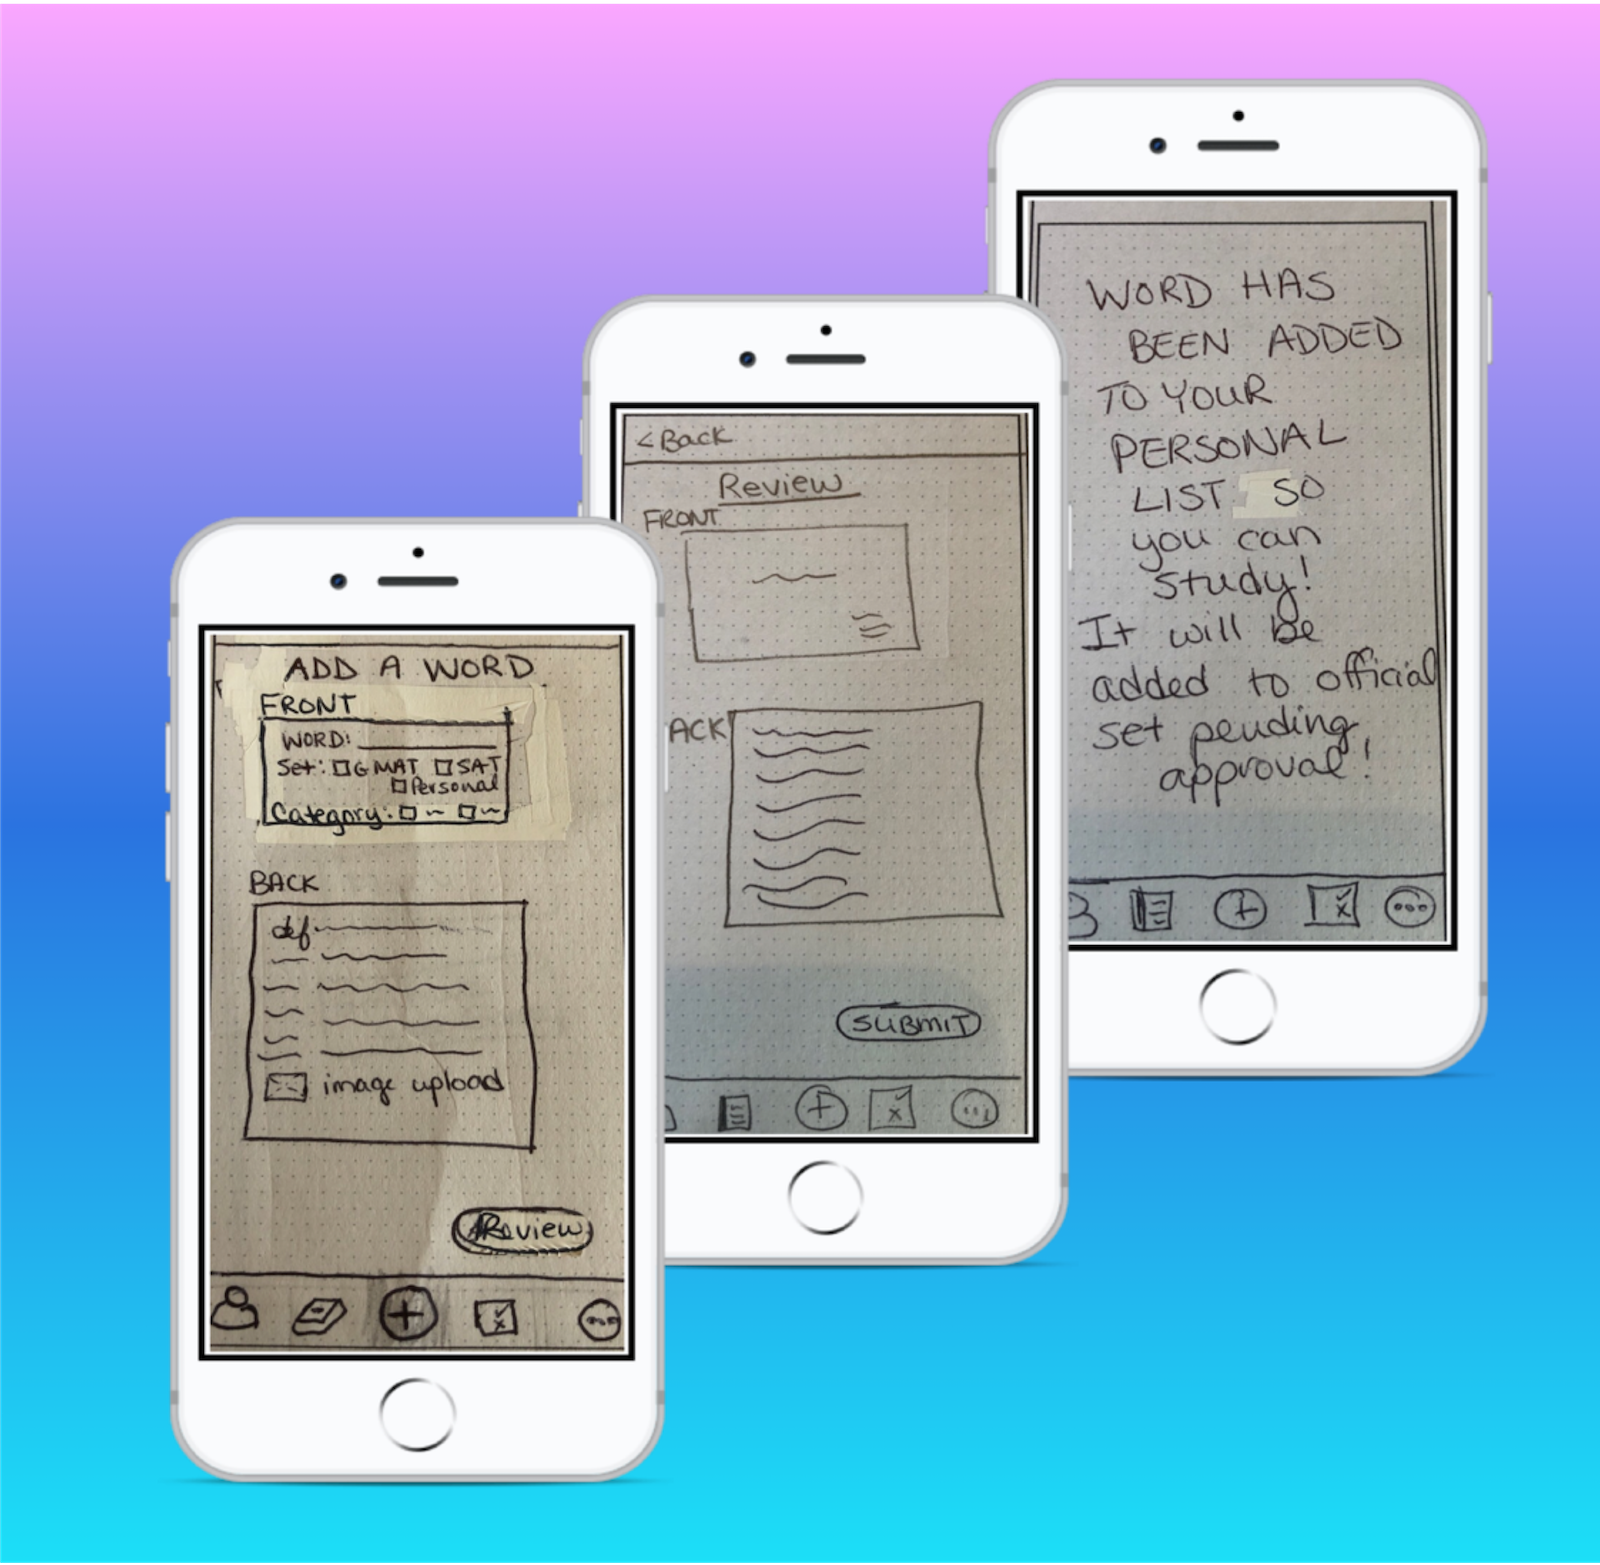 ADD A WORD
FRONT
WORD:
Set: GMAT SAT
Personal
Category:
BACK
def
image upload
Review
< Back
Review
FRONT
ACK
SUBMIT
WORD HAS
BEEN ADDED
TO YOUR
PERSONAL
LIST SO
you can
study!
It will be
added to official
set pending
approval!